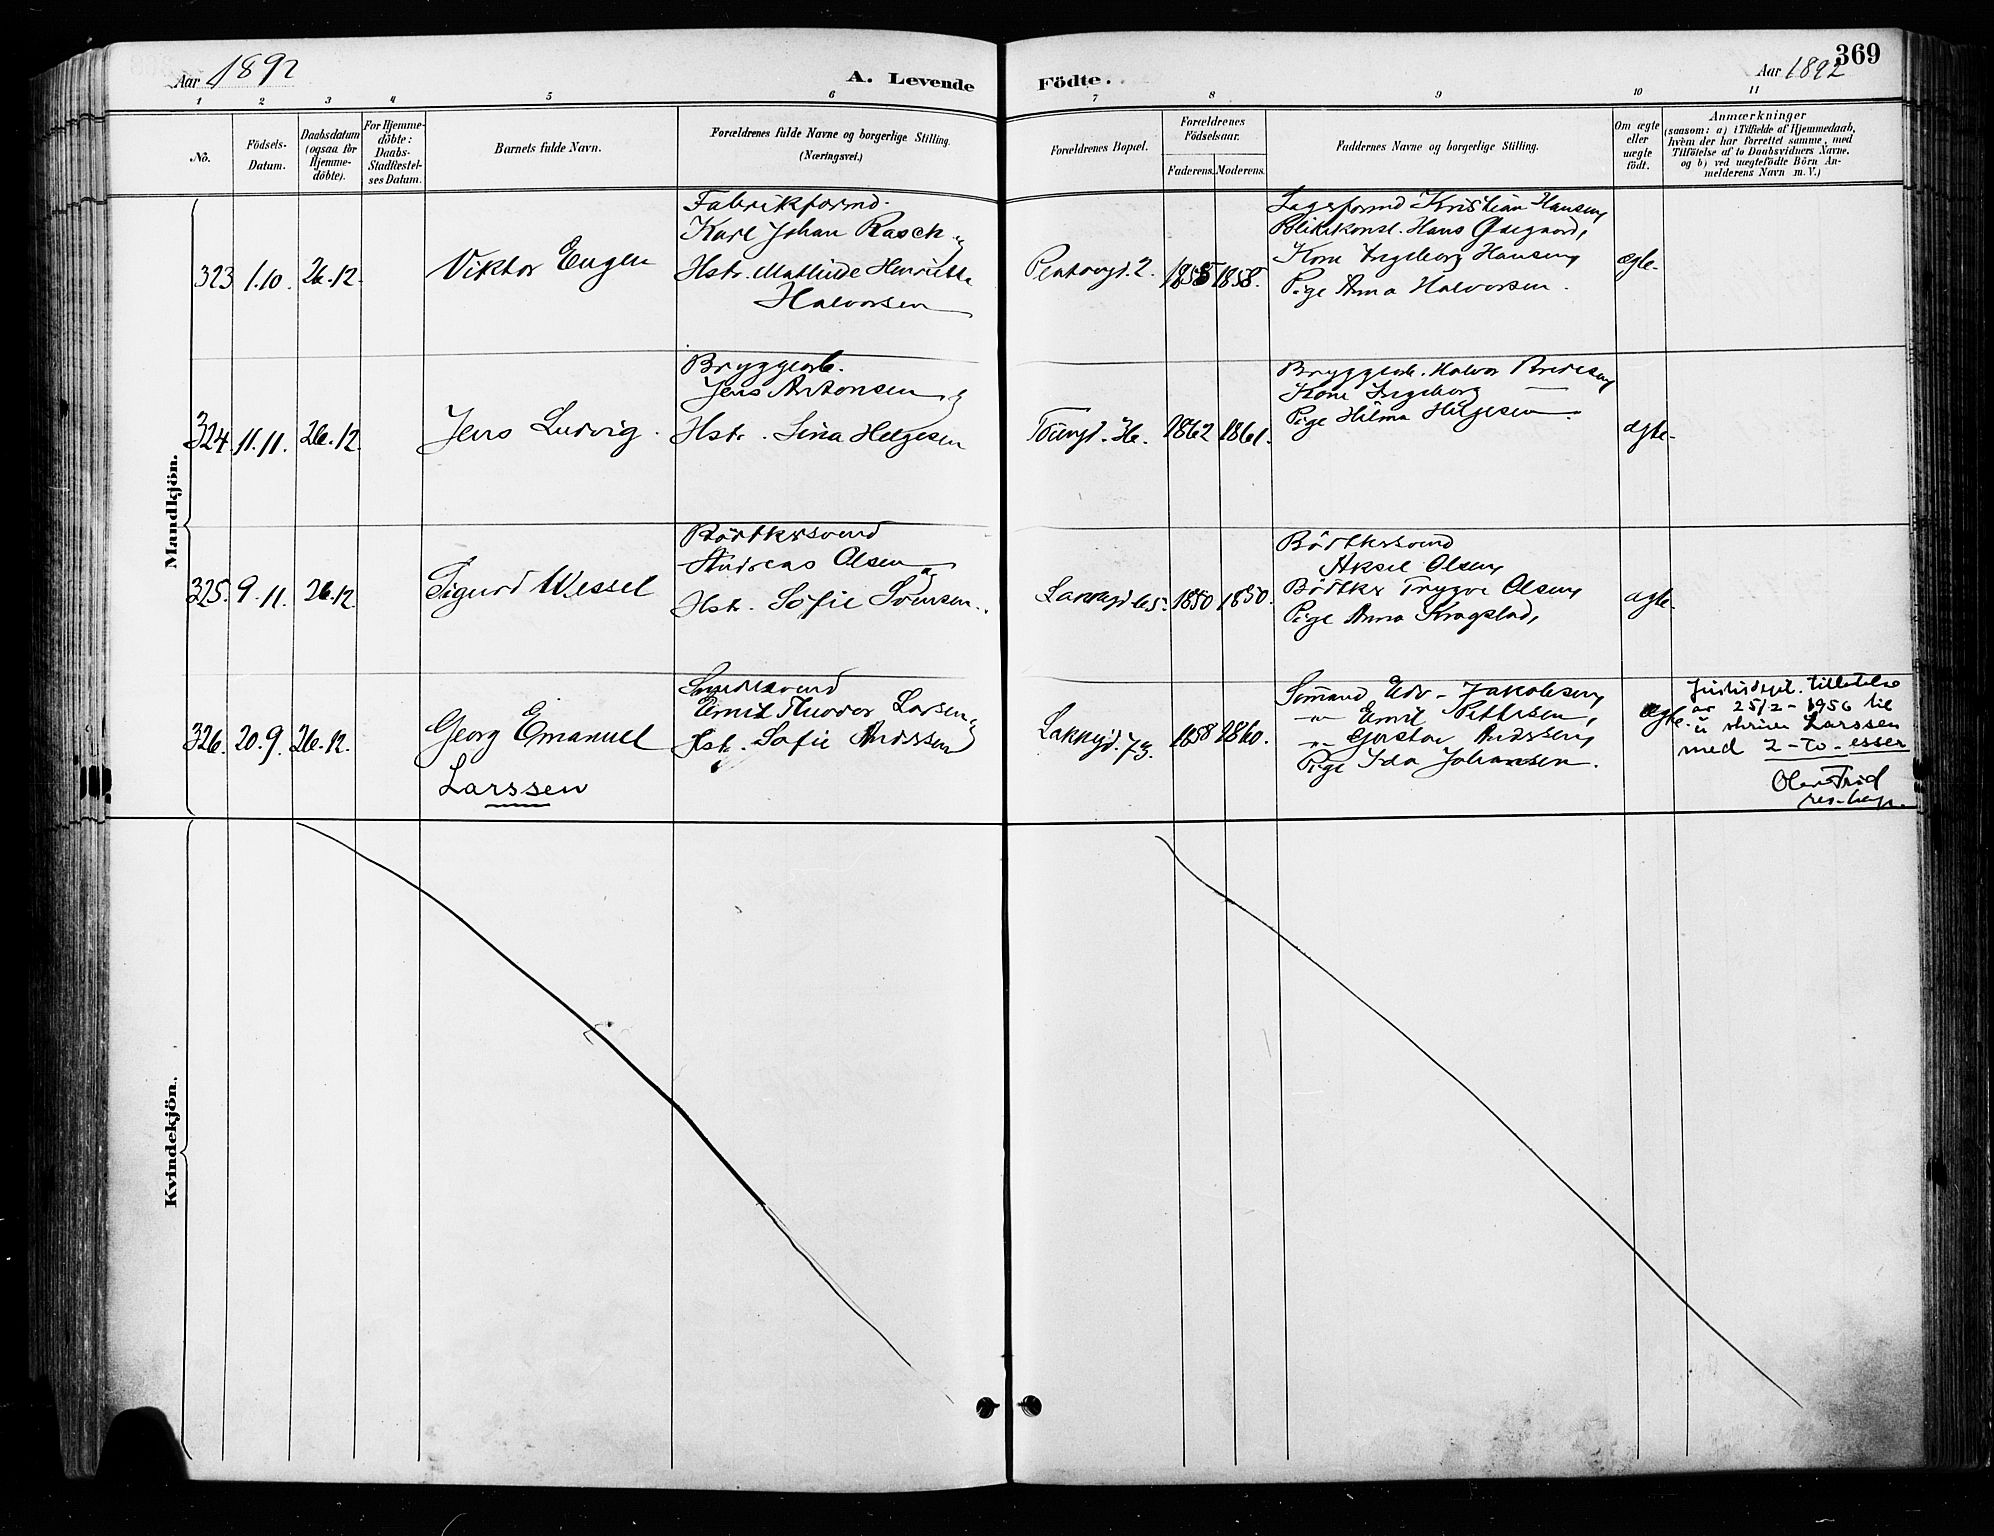 Aar 1892
A. Levende
Födte.
Aar 1892
369
1 2 3 4 5 6 7 8 9 10 11
No.
Födsels-
Datum.
Daabsdatum
(ogsaa for
Hjemme-
döbte).
For Hjemme-
döbte:
Daabs-
Stadfæstel-
ses Datum.
Barnets fulde Navn.
Forældrenes fulde Navne og borgerlige Stilling.
(Næringsvei.)
Forældrenes Bopæl.
Forældrenes
Födselsaar.
Faderens. Moderens.
Faddernes Navne og borgerlige Stilling.
Om ægte
eller
uægte
födt.
Anmærkninger
(saasom: a) i Tilfælde af Hjemmedaab,
hvem der har forrettet samme, med
Tilföielse af to Daabsvidners Navne.
og b) ved uægtefödte Börn An-
melderens Navn m. V.)
Mandkjön.
323 1.10. 26.12.
Viktor Eugen
Fabrikformd.
Karl Johan Rasch og
Hstr. Mathilde Henriette
Halvorsen
2. 1855 1858.
Lagsformd Kristian Hansen,
Politikonst. Hans
Kone Ingeborg Hansen,
Pige Anna Halvorsen.
ægte.
324. 11.11. 26.12.
Jens Ludvig.
Bryggearb.
Jens Antonsen og
Hstr. Lina Helgesen
Töiengd. 36. 1862 1861.
Bryggearb. Halvor
Kone Ingeborg —
Pige Hilma Helgesen.
ægte.
325. 9.11. 26.12
Sigurd Wessel
Bödtkersvend
Andreas Olsen og
Hstr. Sofie Svensen.
65. 1850 1850.
Bödtkersvend
Aksel Olsen,
Bödtker Trygve Olsen,
Pige Anna Kragstad,
ægte.
326. 20.9. 26.12.
Georg Emanuel
Larssen
Smedesvend
Emil Theodor Larsen og
Hst. Sofie Anderssen
Lakkegd. 73. 1858 1860.
Sömand Edv. Jakobsen,
-"- Emil Pettersen,
-"- Gustav Anderssen,
Pige Ida Johansen.
ægte.
Justisdept. tillatelse
av 25/2-1956 til
å skrive Larssen
med 2-to-esser
Kvindekjön.